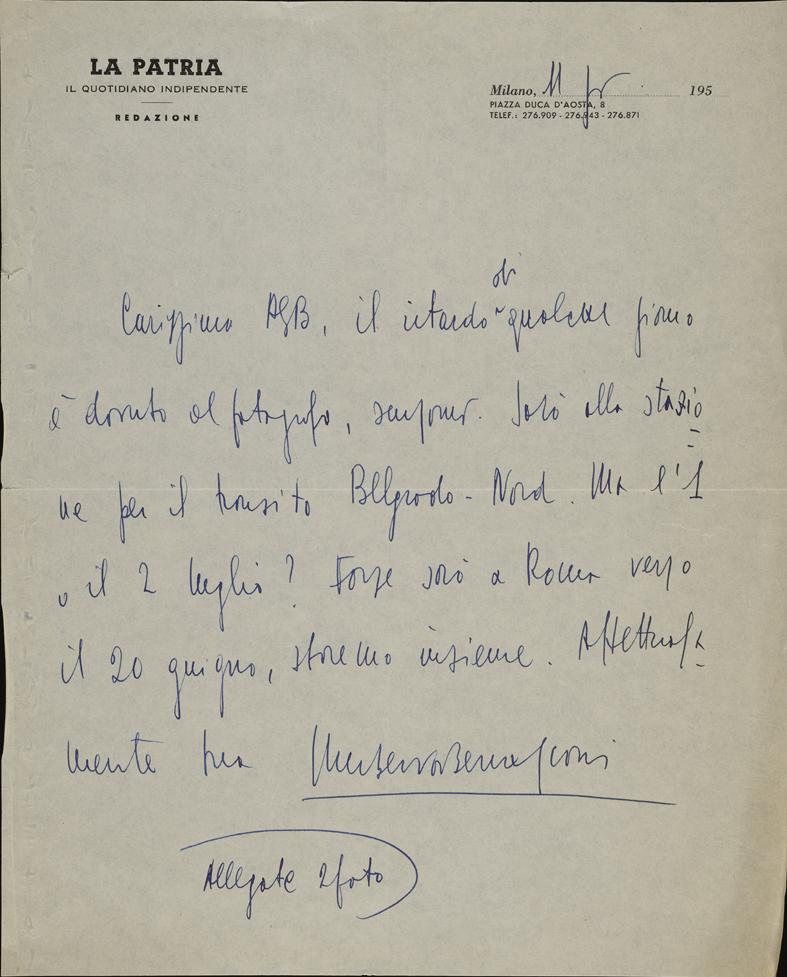 LA PATRIA
IL QUOTIDIANO INDIPENDENTE
REDAZIONE
Milano, 11 195
PIAZZA DUCA D'AOSTA, 8
TELEF.: 276.909 - 276.943 - 276.871
di
Carissimo AGB, il ritardo qualche giorno
è dovuto al fotografo, scusami. Sarò alla stazio
ne per il transito Belgrado - Nord. Ma l'1
o il 2 luglio? Forse sarò a Roma verso
il 20 giugno, staremo insieme. Affettuosa
mente tua
Allegate 2 foto